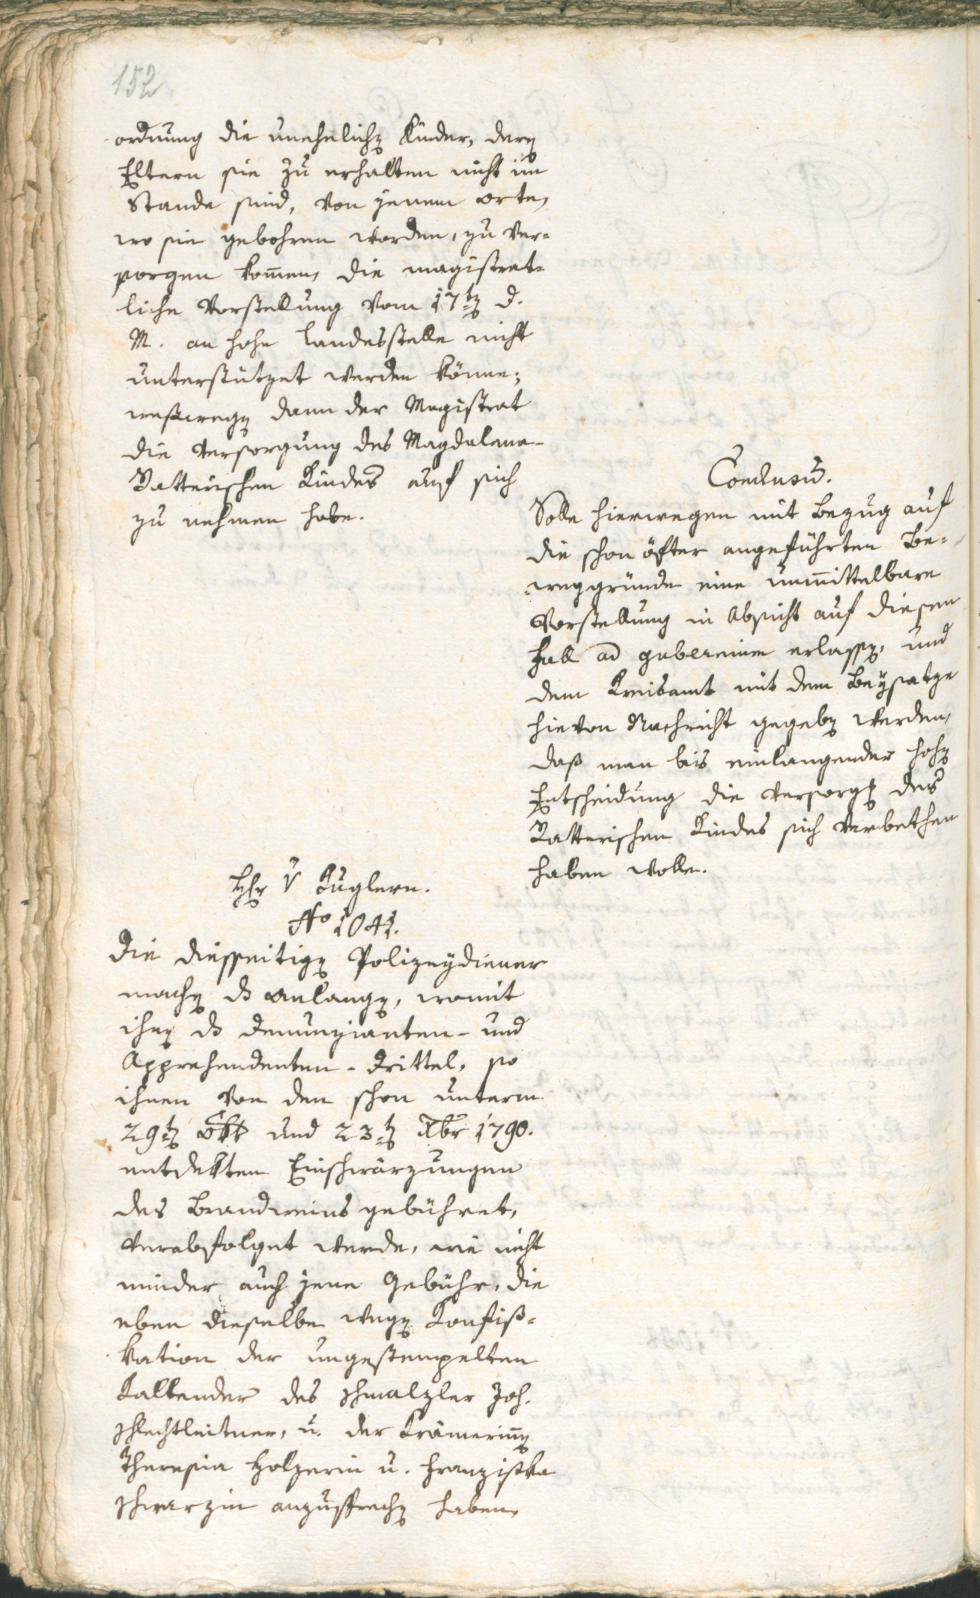 152
ordnung die unehelichen Kinder, deren
Eltern sie zu erhalten nicht im
Stande sind, von jenem Orte,
wo sie gebohren worden, zu ver-
sorgen kommen, die magistrat-
liche Vorstellung vom 17ten d.
M. an hohe Landesstelle nicht
unterstützet werden könne;
weßwegen dann der Magistrat
die Versorgung des Magdalena-
Natterischen Kindes auf sich
zu nehmen habe.
Conclusum.
Solle hierwegen mit Bezug auf
die schon öfter angeführten Be-
weggründe eine unmittelbare
Vorstellung in Absicht auf diesen
Fall ad gubernium erlassen, und
dem Kreisamt mit dem Beysatze
hievon Nachricht gegeben werden,
daß man bis einlangender hohen
Entscheidung die Versorgung des
Natterischen Kindes sich verbethen
haben wolle.
Hr v Kuglern.
No 1041.
Die diesseitigen Polizeydiener
machen das Anlangen, womit
ihnen das Denunzianten- und
Apprehendenten-Drittel, so
ihnen von den schon unterm
29ten Okt und 23ten Xbr 1790.
entdekten Einschwärzungen
des Brandweins gebühret,
verabfolget werde, wie nicht
minder auch jene Gebühr, die
eben dieselbe wegen Konfis-
kation der ungestempelten
Kallender des Schmalzler Joh.
Schlechtleitner, u. der Krämerinnen
Theresia Holzerin u. Franziska
Schwarzin anzusprechen haben,